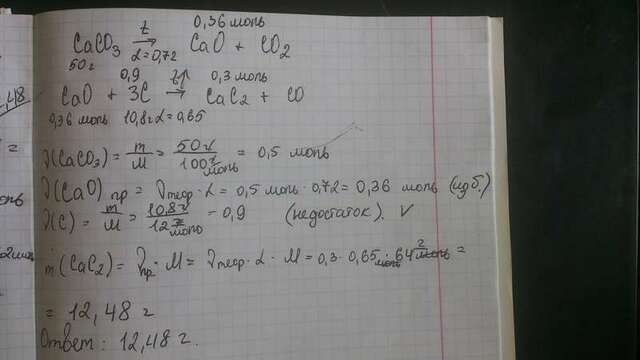 t 0,36 моль
CaCO₃ → CaO + CO₂
50г α=0,72
0,9 tр 0,3 моль
CaO + 3C → CaC₂ + CO
0,36 моль 10,8г α=0,65
,48
ν(CaCO₃) = m/M = 50г/100 г/моль = 0,5 моль
ν(CaO) пр = νтеор · α = 0,5 моль · 0,72 = 0,36 моль (изб.)
ν(C) = m/M = 10,8г/12 г/моль = 0,9 (недостаток). V
m(CaC₂) = νпр · M = νтеор · α · M = 0,3 · 0,65 моль · 64 г/моль =
= 12,48 г
Ответ: 12,48 г.